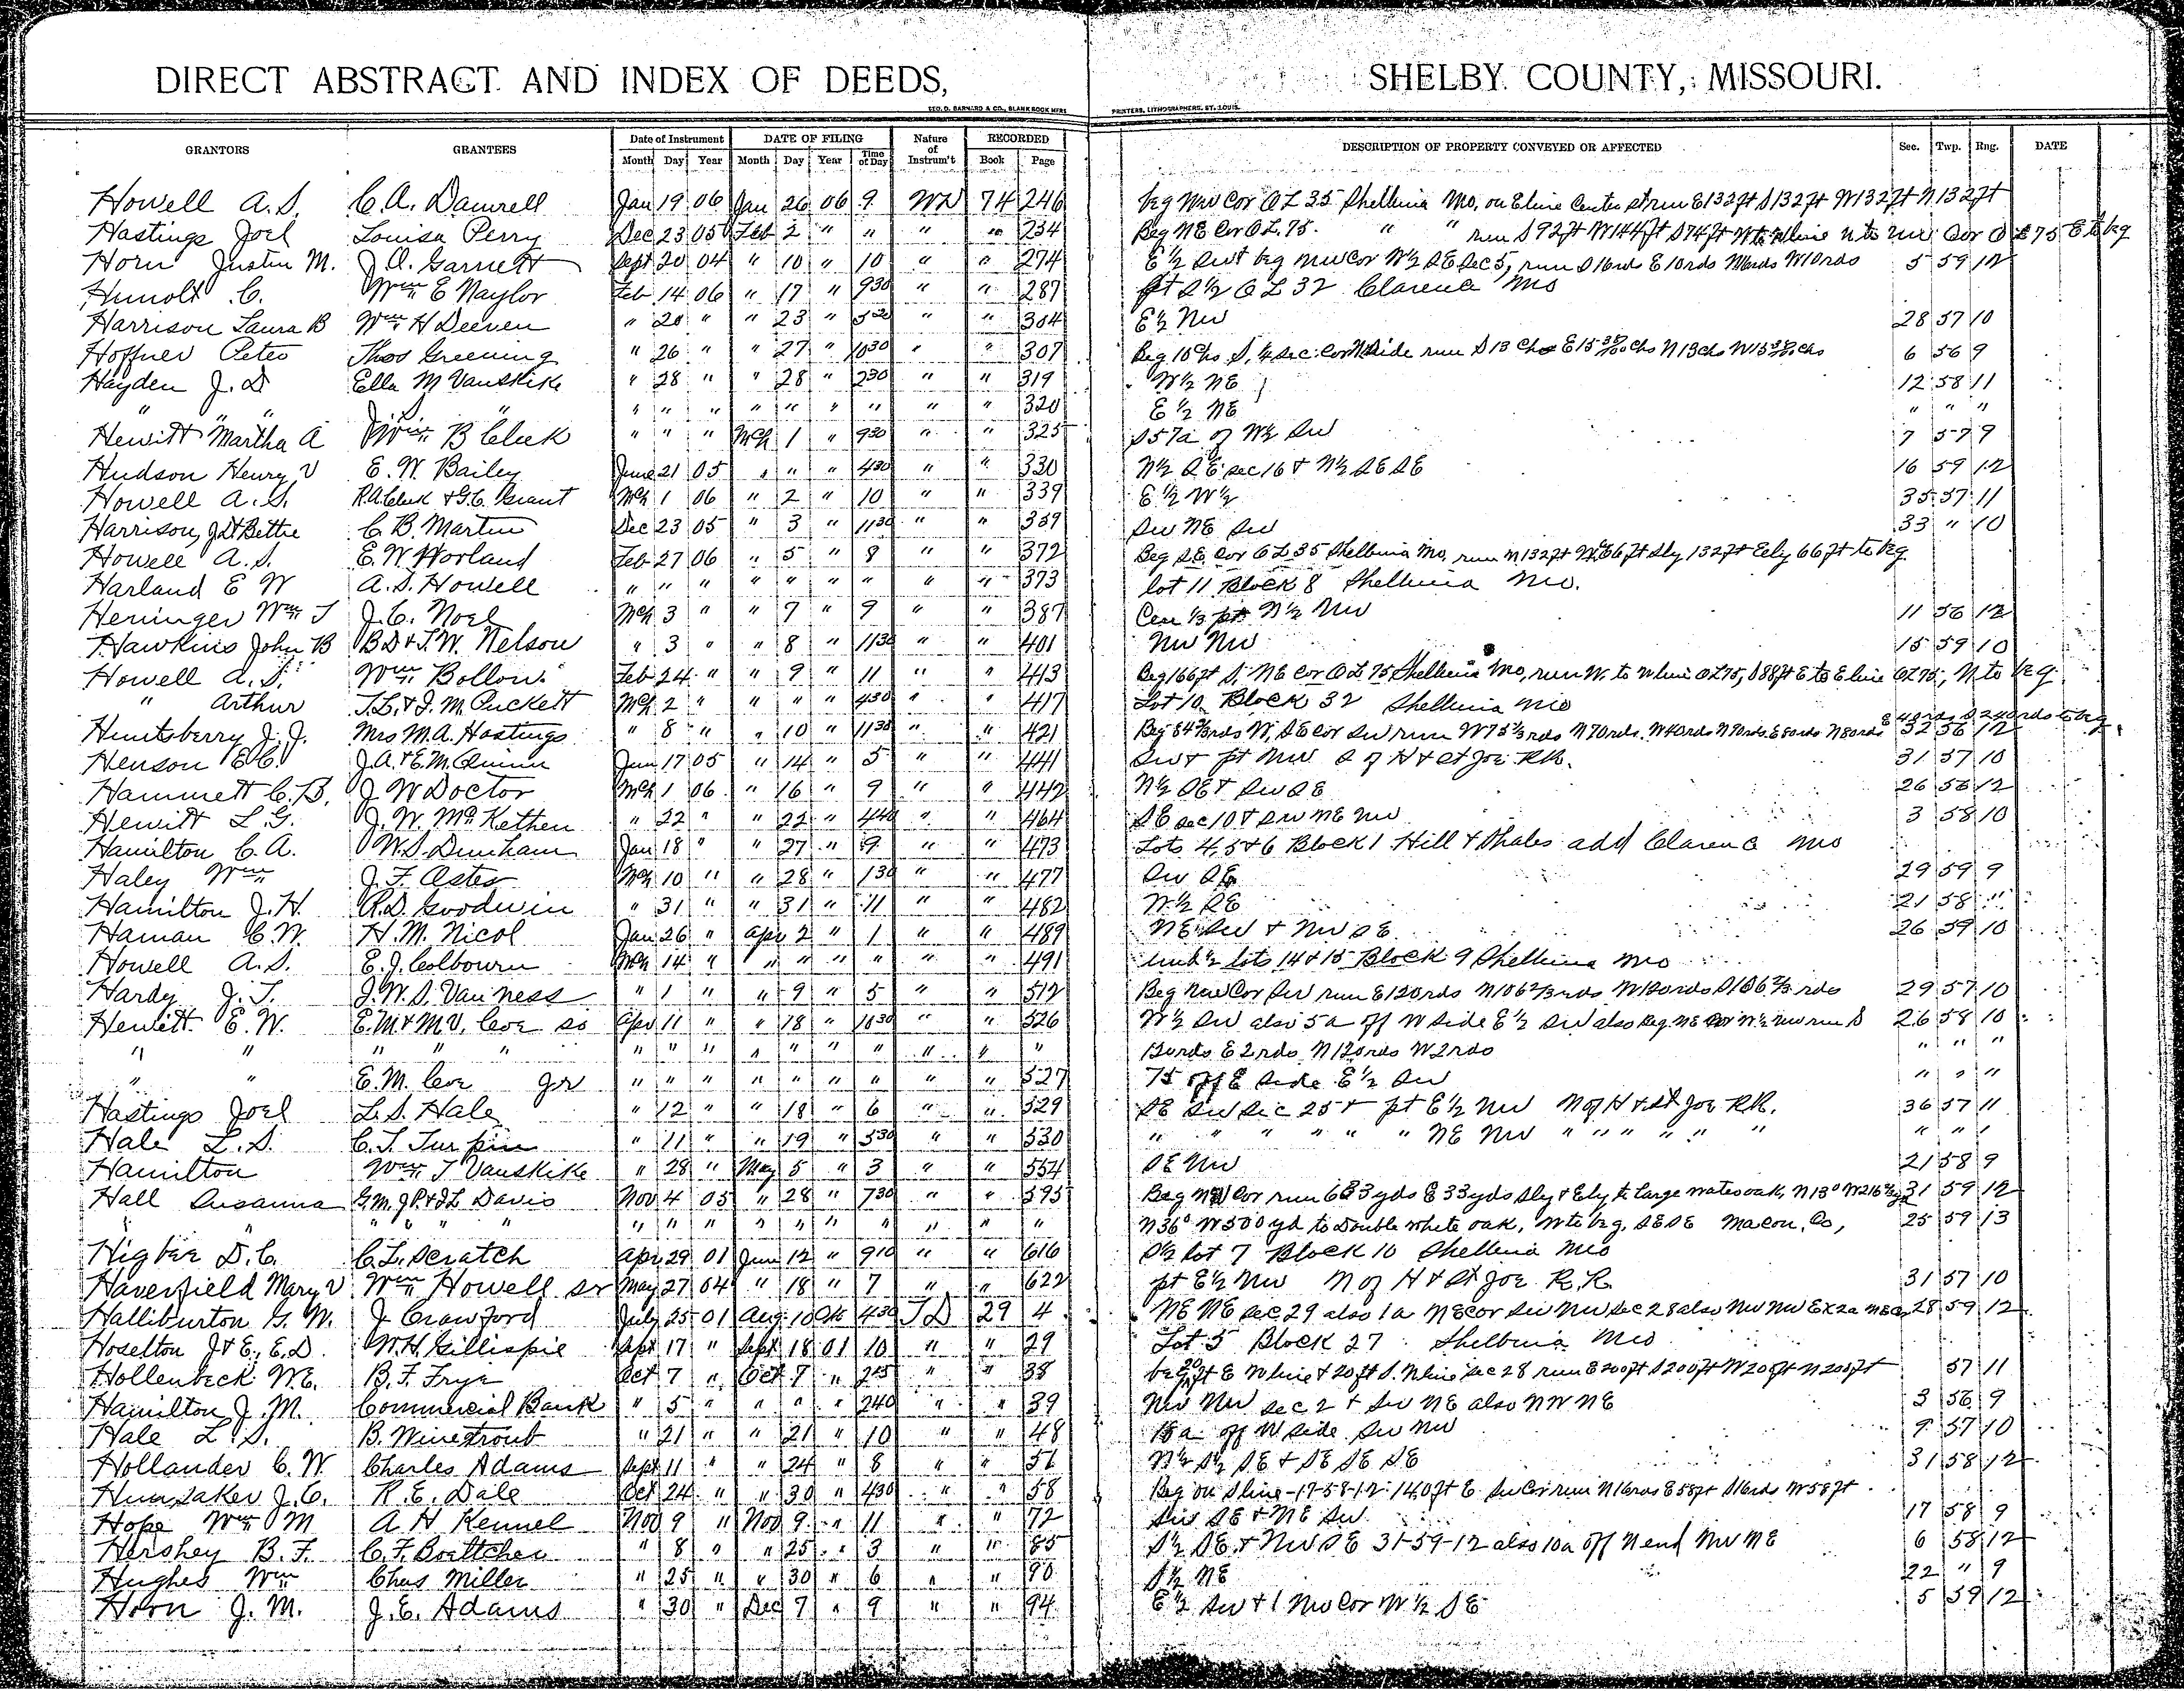 DIRECT ABSTRACT AND INDEX OF DEEDS, SHELBY COUNTY, MISSOURI.
GEO. D. BARNARD & CO., BLANK BOOK MFRS PRINTERS, LITHOGRAPHERS, ST. LOUIS.
GRANTORS GRANTEES Date of Instrument DATE OF FILING Nature of Instrum't RECORDED DESCRIPTION OF PROPERTY CONVEYED OR AFFECTED Sec. Twp. Rng. DATE
Month Day Year Month Day Year Time of Day Book Page
Howell A.S. C.A. Damrell Jan 19 06 Jan 26 06 9 WD 74 246 beg NW Cor OL 35 Shelbina Mo, on E line Center st run E132ft S132ft W132ft N132ft
Hastings Joel Louisa Perry Dec 23 05 Feb 2 " " " " 254 Beg NE Cor OL 75. " " run S92ft W144ft S74ft W to W line N to NW Cor OL 75 E to beg
Horn Justin M. J.A. Garnett Sept 20 04 " 10 " 10 " " 274 E½ SW+ beg NW Cor W½ SE Sec 5, run S16rds E10rds N16rds W10rds 5 59 12
Hunolt C. Wm E Naylor Feb 14 06 " 17 " 930 " " 287 pt S½ OL 32 Clarence Mo
Harrison Laura B Wm H Deeven " 20 " " 23 " " " 304 E½ NW 28 57 10
Hoffner Peter Thos Greening " 26 " " 27 " 1030 " " 307 Beg 10chs S, ¼ sec cor N side run S 13 chs E 15 chs N 13chs W 15 chs 6 56 9
Hayden J.D Ella M Vanskike " 28 " " 28 " 230 " " 319 W½ NE 12 58 11
" " " " " " " " " " " " " 320 E½ NE " " "
Hewitt Martha A Wm B Cleek " " " Mch 1 " 930 " " 325 S57a of W½ SW 7 57 9
Hudson Henry V E.W. Bailey June 21 05 " " " 430 " " 330 N½ SE sec 16 + N½ SE SE 16 59 12
Howell A.S. R.A. Cleek + G.C. Grant Mch 1 06 " 2 " 10 " " 339 E½ W½ 35 57 11
Harrison, J.D+Bettie C.B. Martin Dec 23 05 " 3 " 1130 " " 359 SW NE SW 33 " 10
Howell A.S. E.W Worland Feb 27 06 " 5 " 8 " " 372 Beg SE Cor OL 35 Shelbina Mo, run N132ft Wly 66ft Sly 132ft Ely 66ft to beg
Harland E W A.S. Howell " " " " " " " " " 373 lot 11 Block 8 Shelbina Mo.
Heninger Wm J J.C. Noel Mch 3 " " 7 " 9 " " 387 Cen ⅓ pt N½ NW 11 56 12
Hawkins John B B.D+T.W. Nelson " 3 " " 8 " 1130 " " 401 NW NW 15 59 10
Howell A.S. Wm Bollow Feb 24 " " 9 " 11 " " 413 Beg 166ft S. NE Cor OL 75 Shelbina Mo, run W. to W line OL 75, S88ft E to E line OL 75, N to beg
" Arthur T.L.+J.M. Puckett Mch 2 " " " " 430 " " 417 Lot 10 Block 32 Shelbina Mo
Huntsberry J.J. Mrs M.A. Hastings " 8 " " 10 " 1130 " " 421 Beg 84⅔rds W, SE Cor SW run W75⅓rds N70rds W40rds N90rds E80rds N80rds E 40rds S 240rds to beg 32 56 12
Henson E.C. J.A.+E.M. Quinn Jan 17 05 " 14 " 5 " " 441 SW+ pt NW S of H+St Joe RR. 31 57 10
Hammett C.B. J W Doctor Mch 1 06 " 16 " 9 " " 442 N½ SE+ SW SE 26 56 12
Hewitt L.G. J.W. McKethen " 22 " " 22 " 440 " " 464 SE sec 10 + SW NE NW 3 58 10
Hamilton C.A. W.S. Dunham Jan 18 " " 27 " 9 " " 473 Lots 4,5+6 Block 1 Hill + Shales add Clarence Mo
Haley Wm J.F. Oster Mch 10 " " 28 " 130 " " 477 SW SE 29 59 9
Hamilton J.H. R.D. Goodwin " 31 " " 31 " 11 " " 482 N½ SE 21 58 "
Haman C.W. H.M. Nicol Jan 26 " Apr 2 " 1 " " 489 NE SW + NW SE 26 59 10
Howell A.S. E.J. Colbourn Mch 14 " " " " " " " 491 und ½ lots 14+15 Block 9 Shelbina Mo
Hardy J.T. J.W.S. Van Ness " 1 " " 9 " 5 " " 512 Beg NW Cor SW run E120rds N106⅔rds W120rds S106⅔rds 29 57 10
Hewitt E.W. E.M+M.V. Coe sr Apr 11 " " 18 " 1030 " " 526 W½ SW also 5a off W side E½ SW also Beg NE Cor W½ NW run S 26 58 10
" " " " " " " " " " " " " " " 120rds E 2rds N120rds W2rds " " "
" " E.M. Coe Jr " " " " " " " " " 527 75 off E side E½ SW " " "
Hastings Joel L.S. Hale " 12 " " 18 " 6 " " 529 SE SW Sec 25 + pt E½ NW N of H+St Joe RR. 36 57 11
Hale L.S. C.T. Turpin " 11 " " 19 " 530 " " 530 " " " " " " NE NW " " " " " " " " "
Hamilton Wm T Vanskike " 28 " May 5 " 3 " " 554 SE NW 21 58 9
Hall Susanna G.M. J.P.+J.L. Davis Nov 4 05 " 28 " 730 " " 595 Beg NW Cor run 683yds E 33yds Sly + Ely to large water oak, N13° W216 yd 31 59 12
" " " " " " " " " " " " " " " N36° W500 yd to Double white oak, W to beg. SE SE Macon, Co, 25 59 13
Higbee D.C. C.L. Scratch Apr 29 01 June 12 " 910 " " 616 S½ lot 7 Block 10 Shelbina Mo
Haverfield Mary V Wm Howell sr May 27 04 " 18 " 7 " " 622 pt E½ NW N of H+St Joe R.R. 31 57 10
Halliburton G.M. J Crawford July 25 01 Aug 10 430 TD 29 4 NE NE sec 29 also 1a NE cor SW NW Sec 28 also NW NW Ex 2a NE Cor 28 59 12
Hoselton J+E., E.D. W.H. Gillispie Sept 17 " Sept 18 01 10 " " 29 Lot 5 Block 27 Shelbina Mo
Hollenbeck W.E. B.F. Frye Oct 7 " Oct 7 " 245 " " 38 beg 20ft E W line + 20ft S. N line Sec 28 run E200ft S200ft W200ft N200ft 57 11
Hamilton J.M. Commercial Bank " 5 " " " " 240 " " 39 NW NW sec 2 + SW NE also NW NE 3 56 9
Hale L.S. B. Winetroub " 21 " " 21 " 10 " " 48 15a off W side SW NW 9 57 10
Hollander C.W. Charles Adams Sept 11 " " 24 " 8 " " 51 N½ S½ SE + SE SE SE 31 58 12
Hunsaker J.C. R.E. Dale Oct 24 " " 30 " 430 " " 58 Beg on S line-17-58-12-140ft E SW Cor run N16rds E58ft S16rds W58ft
Hope Wm M A H Kennel Nov 9 " Nov 9 " 11 " " 72 SW SE + NE SW 17 58 9
Hershey B.F. C.F. Boettcher " 8 " " 25 " 3 " " 85 S½ SE + NW SE 31-59-12 also 10a off N end NW NE 6 58 12
Hughes Wm Chas Miller " 25 " " 30 " 6 " " 90 S½ NE 22 " 9
Horn J.M. J.E. Adams " 30 " Dec 7 " 9 " " 94 E½ SW + 1 NW Cor W½ SE 5 59 12